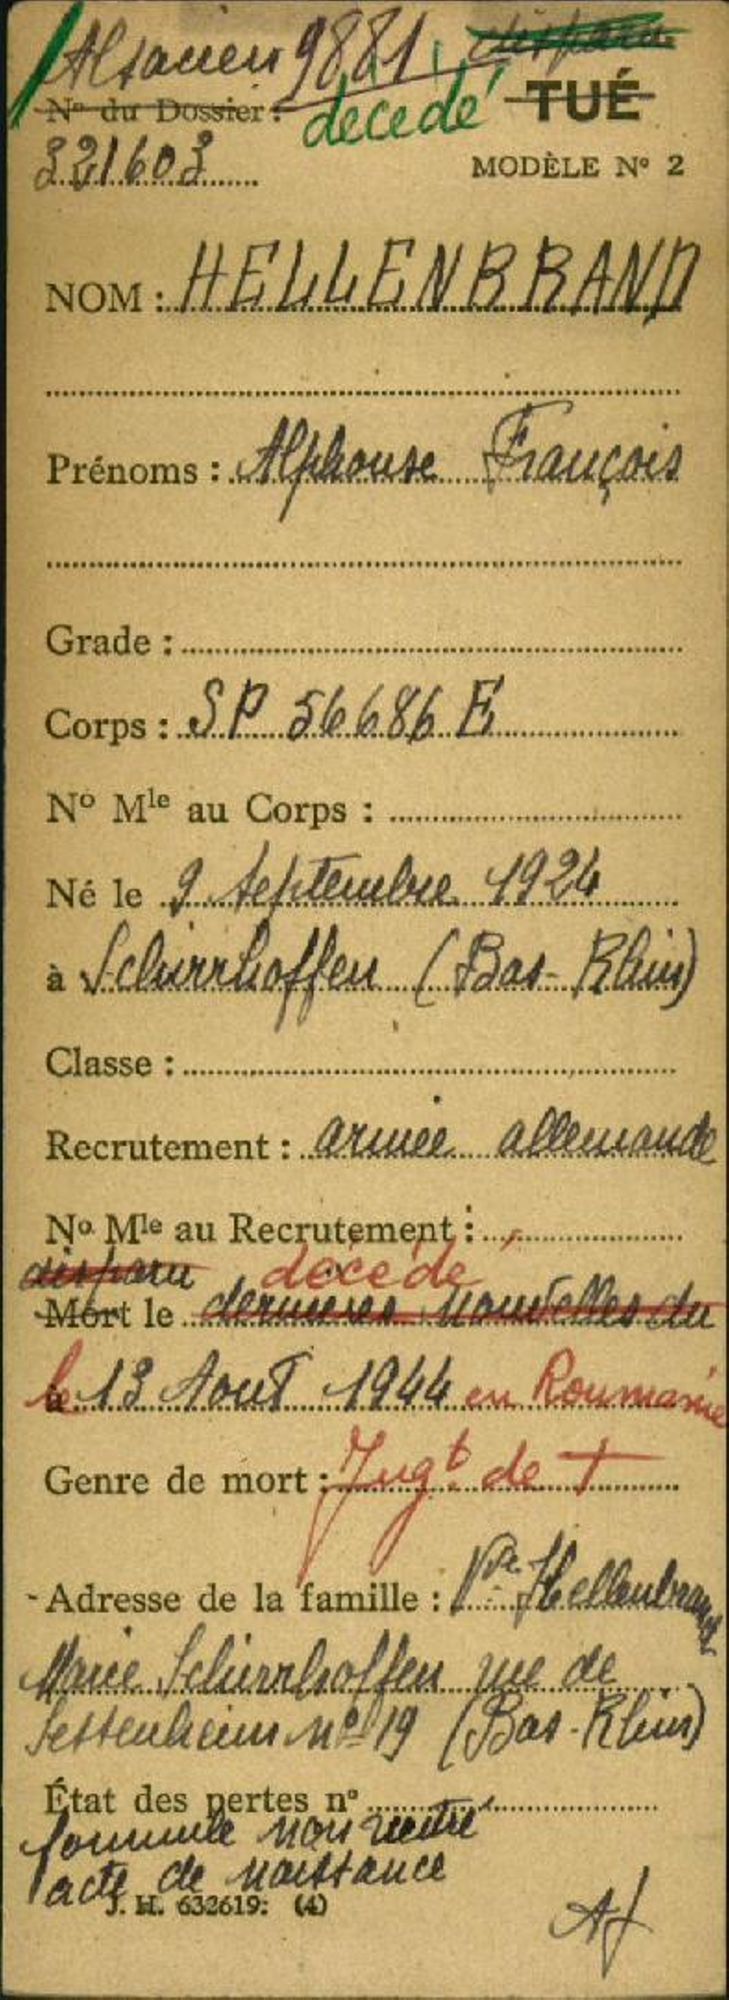 Alsacien 9881 disparu
N° du Dossier : decedé TUÉ
321603
MODÈLE N° 2
NOM : HELLENBRAND
Prénoms : Alphonse François
Grade :
Corps : SP 56686 E
N° Mle au Corps :
Né le 9 Septembre 1924
à Schirrhoffen (Bas-Rhin)
Classe :
Recrutement : armée allemande
N° Mle au Recrutement :
disparu décédé
Mort le dernieres nouvelles du
le 13 Aout 1944 en Roumanie
Genre de mort : Jugt de
Adresse de la famille : Vve Hellenbrand
Marie Schirrhoffen rue de
Settenheim n° 19 (Bas-Rhin)
État des pertes n°
formule non rentré
acte de naissance
J. H. 632619: (4)